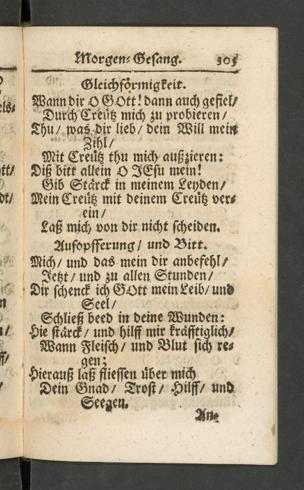 Morgen-Gesang. 305
Gleichförmigkeit.
Wann dir O GOtt! dann auch gefiel/
Durch Creütz mich zu probieren/
Thu/ was dir lieb/ dein Will mein
Zihl/
Mit Creütz thu mich außzieren:
Diß bitt allein O JEsu mein!
Gib Stärck in meinem Leyden/
Mein Creütz mit deinem Creütz ver-
ein/
Laß mich von dir nicht scheiden.
Aufopfferung/ und Bitt.
Mich/ und das mein dir anbefehl/
Jetzt/ und zu allen Stunden/
Dir schenck ich GOtt mein Leib/ und
Seel/
Schließ beed in deine Wunden:
Hie stärck/ und hilff mir kräfftiglich/
Wann Fleisch/ und Blut sich re-
gen;
Hierauß laß fliessen über mich
Dein Gnad/ Trost/ Hilff/ und
Seegen.
An-